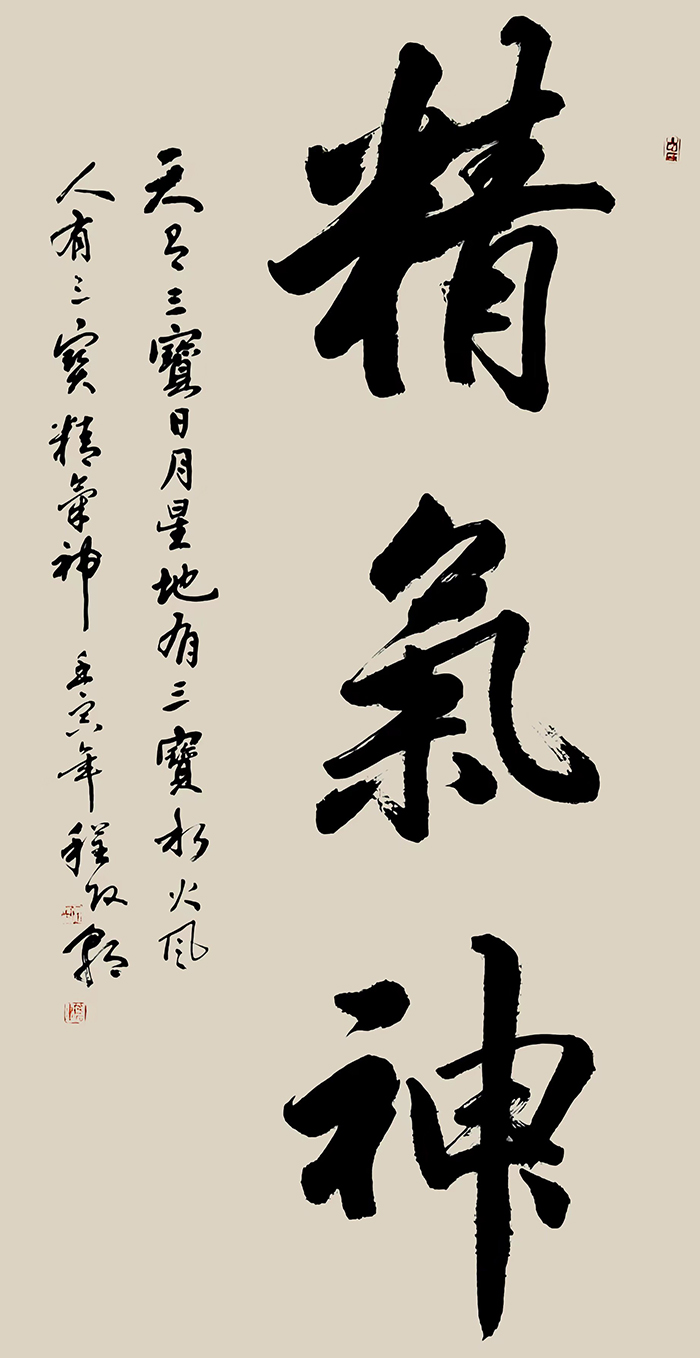 精氣神
天有三寶日月星地有三寶水火風
人有三寶精氣神 壬寅年 程